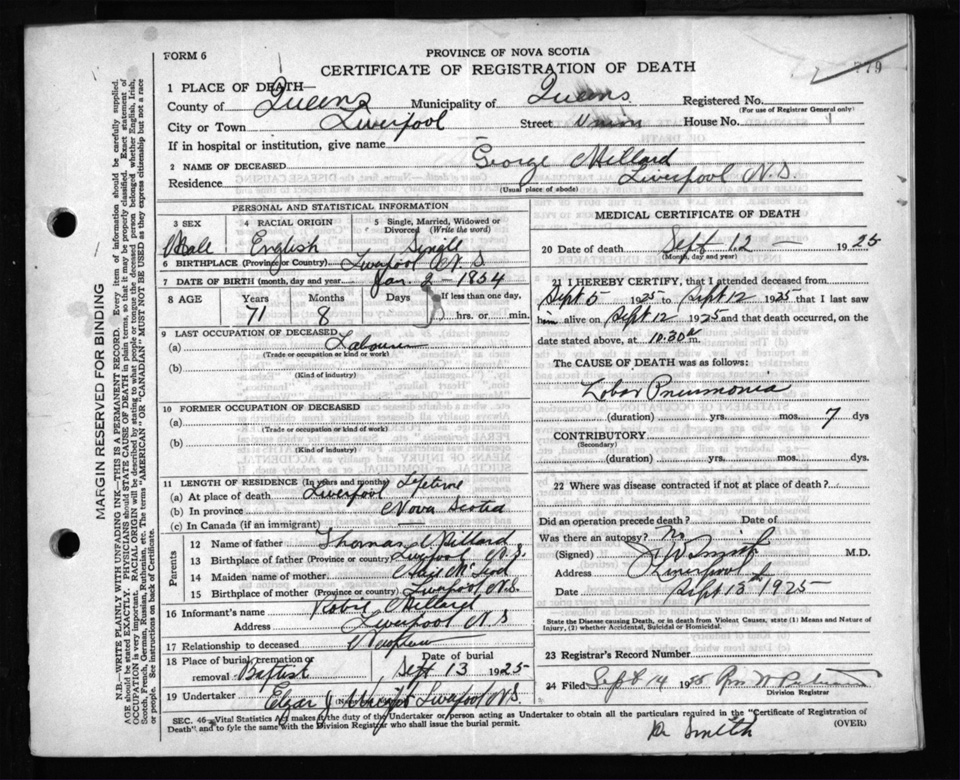 FORM 6
PROVINCE OF NOVA SCOTIA
CERTIFICATE OF REGISTRATION OF DEATH
779
1 PLACE OF DEATH—
County of Queens Municipality of Queens Registered No.
(For use of Registrar General only)
City or Town Liverpool Street Union House No.
If in hospital or institution, give name
2 NAME OF DECEASED George Millard
Residence Liverpool N.S.
(Usual place of abode)
PERSONAL AND STATISTICAL INFORMATION
3 SEX 4 RACIAL ORIGIN 5 Single, Married, Widowed or Divorced (Write the word)
Male English Single
6 BIRTHPLACE (Province or Country) Liverpool N S
7 DATE OF BIRTH (month, day and year) Jan. 2 - 1854
8 AGE Years Months Days If less than one day,
71 8 hrs. or min.
9 LAST OCCUPATION OF DECEASED
(a) Labourer
(Trade or occupation or kind or work)
(b)
(Kind of industry)
10 FORMER OCCUPATION OF DECEASED
(a)
(Trade or occupation or kind of work)
(b)
(Kind of industry)
11 LENGTH OF RESIDENCE (In years and months)
(a) At place of death Liverpool Lifetime
(b) In province Nova Scotia
(c) In Canada (if an immigrant)
Parents
12 Name of father Thomas Millard
13 Birthplace of father (Province or country) Liverpool N.S.
14 Maiden name of mother
15 Birthplace of mother (Province or country) Liverpool N.S.
16 Informant's name Millard
Address Liverpool N S
17 Relationship to deceased Nephew
18 Place of burial, cremation or removal Baptist Date of burial Sept 13 1925
19 Undertaker Liverpool N.S.
MEDICAL CERTIFICATE OF DEATH
20 Date of death Sept 12 — 1925
(Month, day and year)
21 I HEREBY CERTIFY, that I attended deceased from
Sept 5 1925 to Sept 12 1925 that I last saw
him alive on Sept 12 1925 and that death occurred, on the
date stated above, at 10.30 m.
The CAUSE OF DEATH was as follows:
Lobar Pneumonia
(duration) yrs. mos. 7 dys
CONTRIBUTORY
(Secondary)
(duration) yrs. mos. dys
22 Where was disease contracted if not at place of death?
Did an operation precede death? Date of
Was there an autopsy? No
(Signed) J W Smith M.D.
Address Liverpool
Date Sept 13 1925
State the Disease causing Death, or in death from Violent Causes, state (1) Means and Nature of Injury, (2) whether Accidental, Suicidal or Homicidal.
23 Registrar's Record Number
24 Filed Sept 14 1925
Division Registrar
SEC. 46—Vital Statistics Act makes it the duty of the Undertaker or person acting as Undertaker to obtain all the particulars required in the "Certificate of Registration of
Death" and to fyle the same with the Division Registrar who shall issue the burial permit. (OVER)
Dr Smith
MARGIN RESERVED FOR BINDING
N.B.—WRITE PLAINLY WITH UNFADING INK—THIS IS A PERMANENT RECORD. Every item of information should be carefully supplied.
AGE should be stated EXACTLY. PHYSICIANS should STATE CAUSE OF DEATH in plain terms, so that it may be properly classified. Exact statement of
OCCUPATION is very important. RACIAL ORIGIN will be described by stating to what people or tongue the deceased person belonged whether English, Irish,
Scotch, French, German, Russian, Ruthenian, etc. The terms "AMERICAN" OR "CANADIAN" MUST NOT BE USED as they express citizenship but not a race
or people. See instructions on back of Certificate.